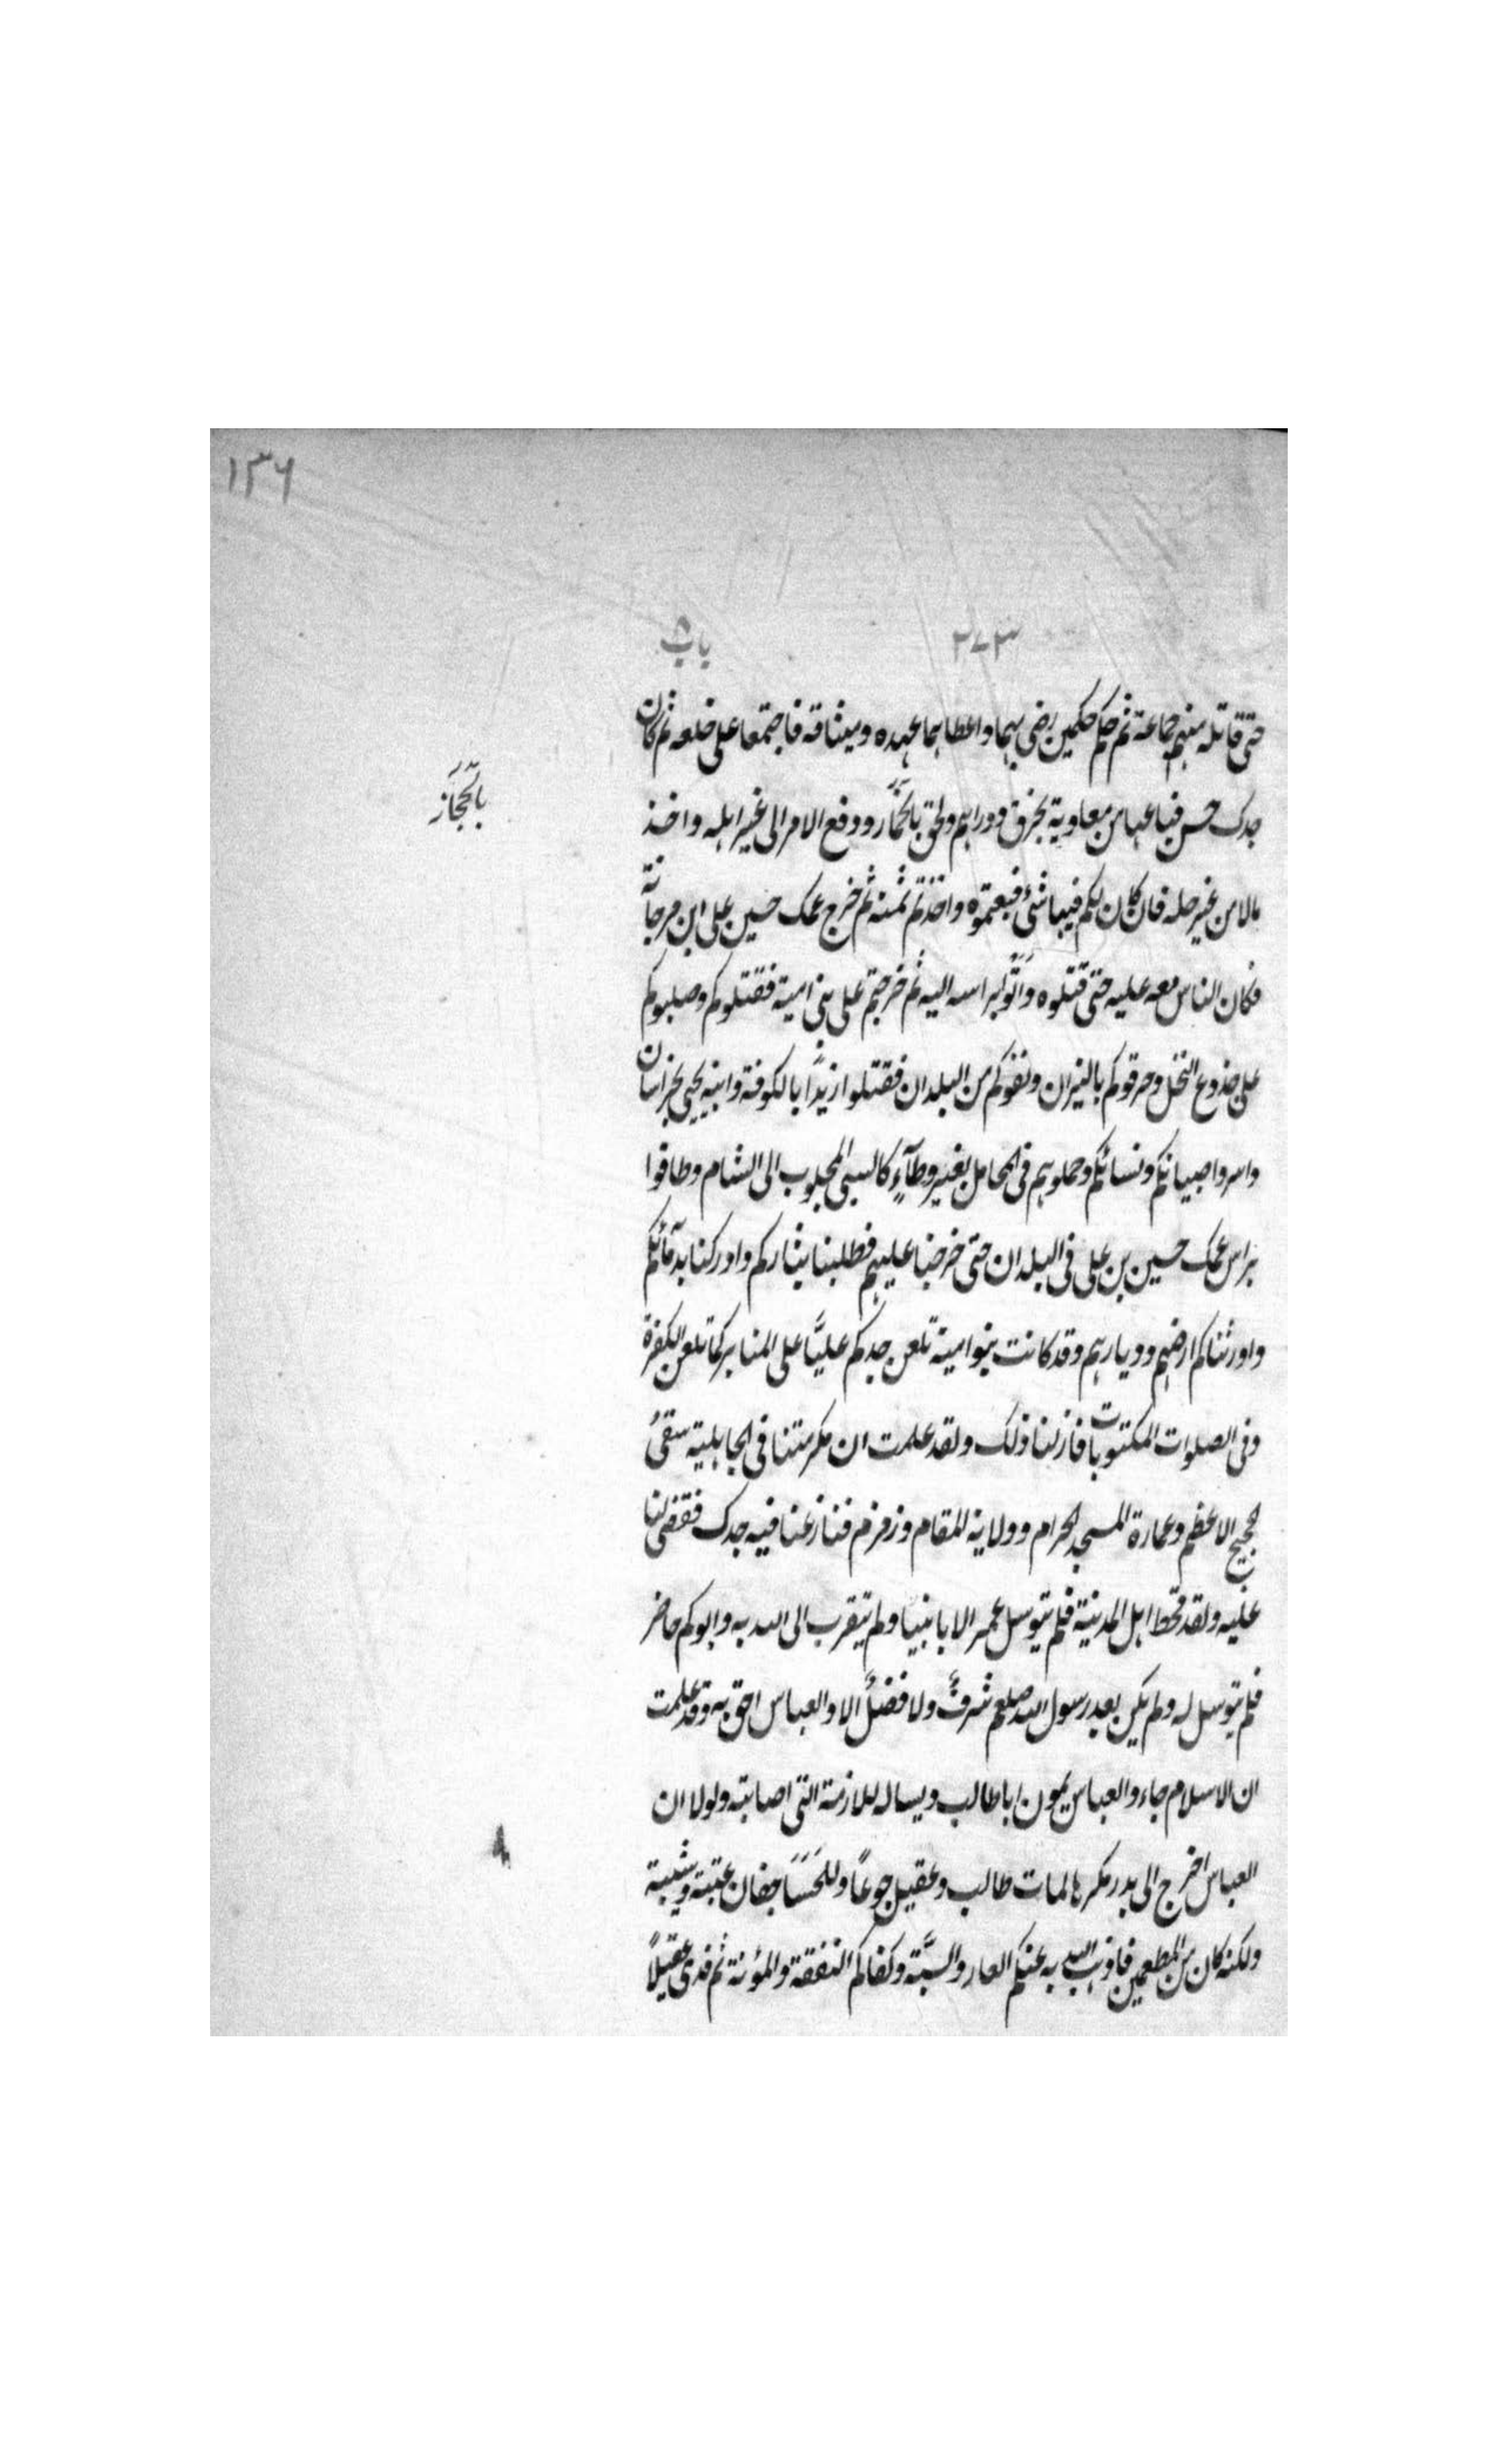 ١٣٦
٢٧٣ باب
حتى قاتله منهم جماعة ثم حكم حكمين رضى بهما واعطاهما عهده وميثاقه فاجتمعا على خلعه ثم كان
بالحجاز
جدك حسن فباعها من معاوية بخرق ودراهم ولحق بالحمار ودفع الامر الى غير اهله واخذ
مالا من غير حله فان كان لكم فيها شئ فبعتموه واخذتم ثمنه ثم خرج عمك حسين على ابن مرجانة
فكان الناس معه عليه حتى قتلوه واتوا براسه اليه ثم خرجتم على بنى امية فقتلوكم وصلبوكم
على جذوع النخل وحرقوكم بالنيران ونفوكم من البلدان فقتلوا زيدًا بالكوفة وابنه يحيى بخراسان
واسروا صبيانكم ونسائكم وحملوهم فى المحامل بغير وطآءٍ كالسبى المجلوب الى الشام وطافوا
براس عمك حسين بن على فى البلدان حتى خرجنا عليهم فطلبنا بثاركم وادركنا بدمآئكم
واورثناكم ارضهم وديارهم وقد كانت بنوامية تلعن جدكم عليًّا على المنابر كما تلعن الكفرة
وفى الصلوات المكتوبات فازلنا ذلك ولقد علمت ان مكرمتنا فى الجاهلية سقى
الحجيج الاعظم وعمارة المسجد الحرام وولاية المقام وزمزم فنازعنا فيه جدك فقضى لنا
عليه ولقد قحط اهل المدينة فلم يتوسل عمر الا بابينا ولم يتقرب الى الله به وابوكم حاضر
فلم يتوسل له ولم يكن بعد رسول الله صلعم شرفٌ ولا فضلٌ الا والعباس احق به وقد علمت
ان الاسلام جاء والعباس يمون اباطالب ويساله للازمة التى اصابته ولولا ان
العباس اخرج الى بدر مكرها لمات طالب وعقيل جوعًا وللحسا جفان عتبة وشيبة
ولكنه كان من المطعمين فاذهب الله به عنكم العار والسبَّة وكفاكم النفقة والمؤنة ثم فدى عقيلًا